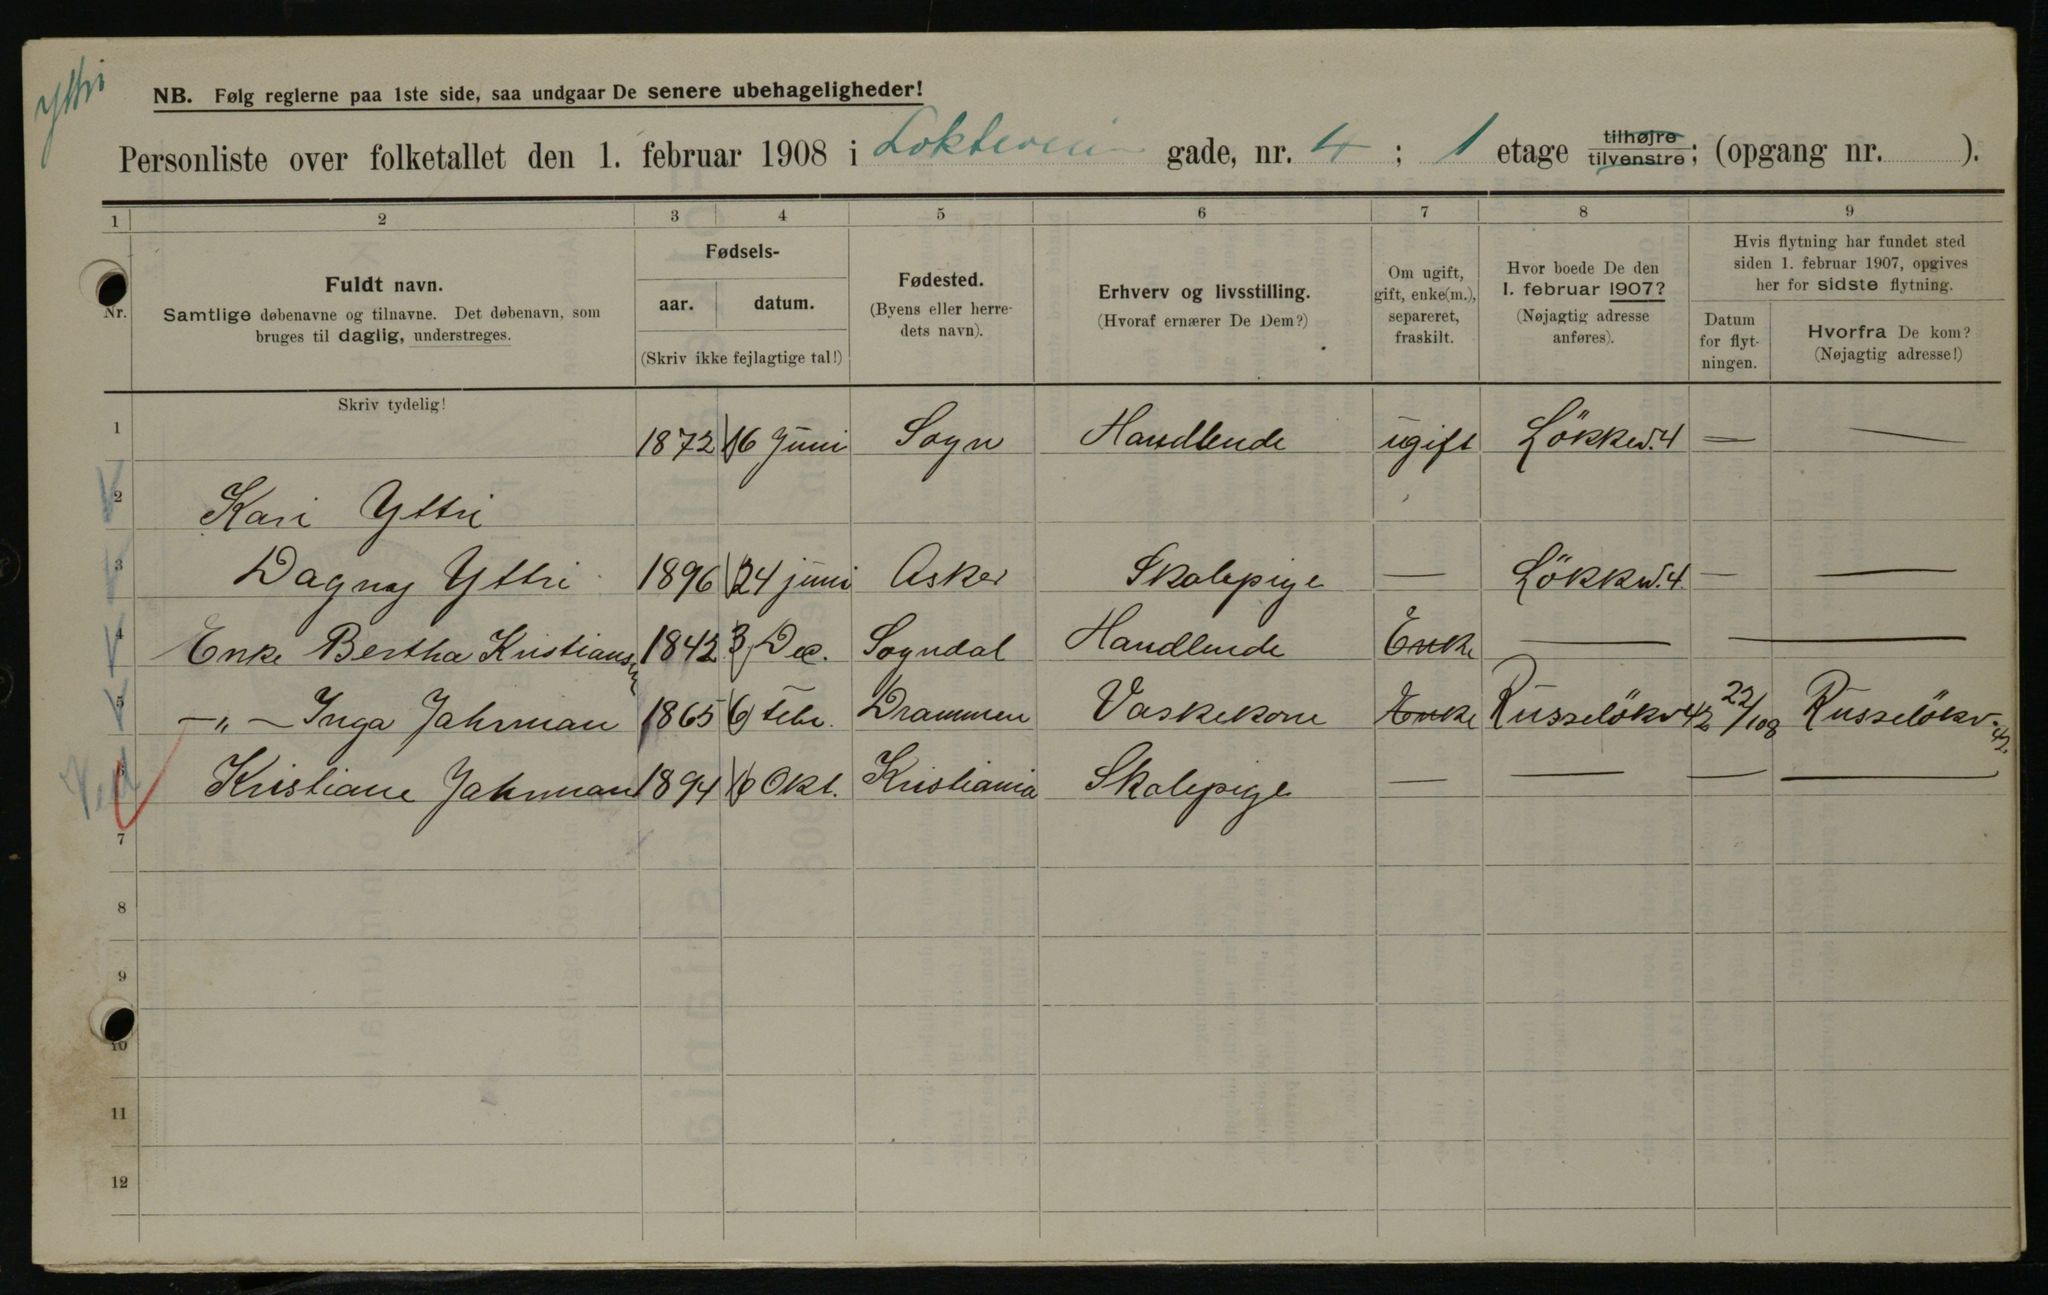 Yttri
NB. Følg reglerne paa 1ste side, saa undgaar De senere ubehageligheder!
Personliste over folketallet den 1. februar 1908 i gade, nr. 4 ; 1 etage tilhøjre tilvenstre; (opgang nr. ).
1 2 3 4 5 6 7 8 9
Nr.
Fuldt navn.
Samtlige døbenavne og tilnavne. Det døbenavn, som
bruges til daglig, understreges.
Skriv tydelig!
Fødsels-
aar. datum.
(Skriv ikke fejlagtige tal!)
Fødested.
(Byens eller herre-
dets navn).
Erhverv og livsstilling.
(Hvoraf ernærer De Dem?)
Om ugift,
gift, enke(m.),
separeret,
fraskilt.
Hvor boede De den
1. februar 1907?
(Nøjagtig adresse
anføres).
Hvis flytning har fundet sted
siden 1. februar 1907, opgives
her for sidste flytning.
Datum
for flyt-
ningen.
Hvorfra De kom?
(Nøjagtig adresse!)
1 1872 16 Juni Sogn Handlende ugift Lökkev. 4 — —
2 Kari Yttri
3 Dagny Yttri 1896 24 juni Asker Skolepige — Lökkev. 4 — —
4 Enke Bertha Kristiansen 1842 3 Dec. Sogndal Handlende Enke — —
5 —„— Inga Jahrman 1865 6 Febr. Drammen Vaskekone Enke Russelökv 42 22/1 08 Russelökv. 42.
6 Kristiane Jahrman 1894 6 Okt. Kristiania Skolepige — — — —
7
8
9
10
11
12